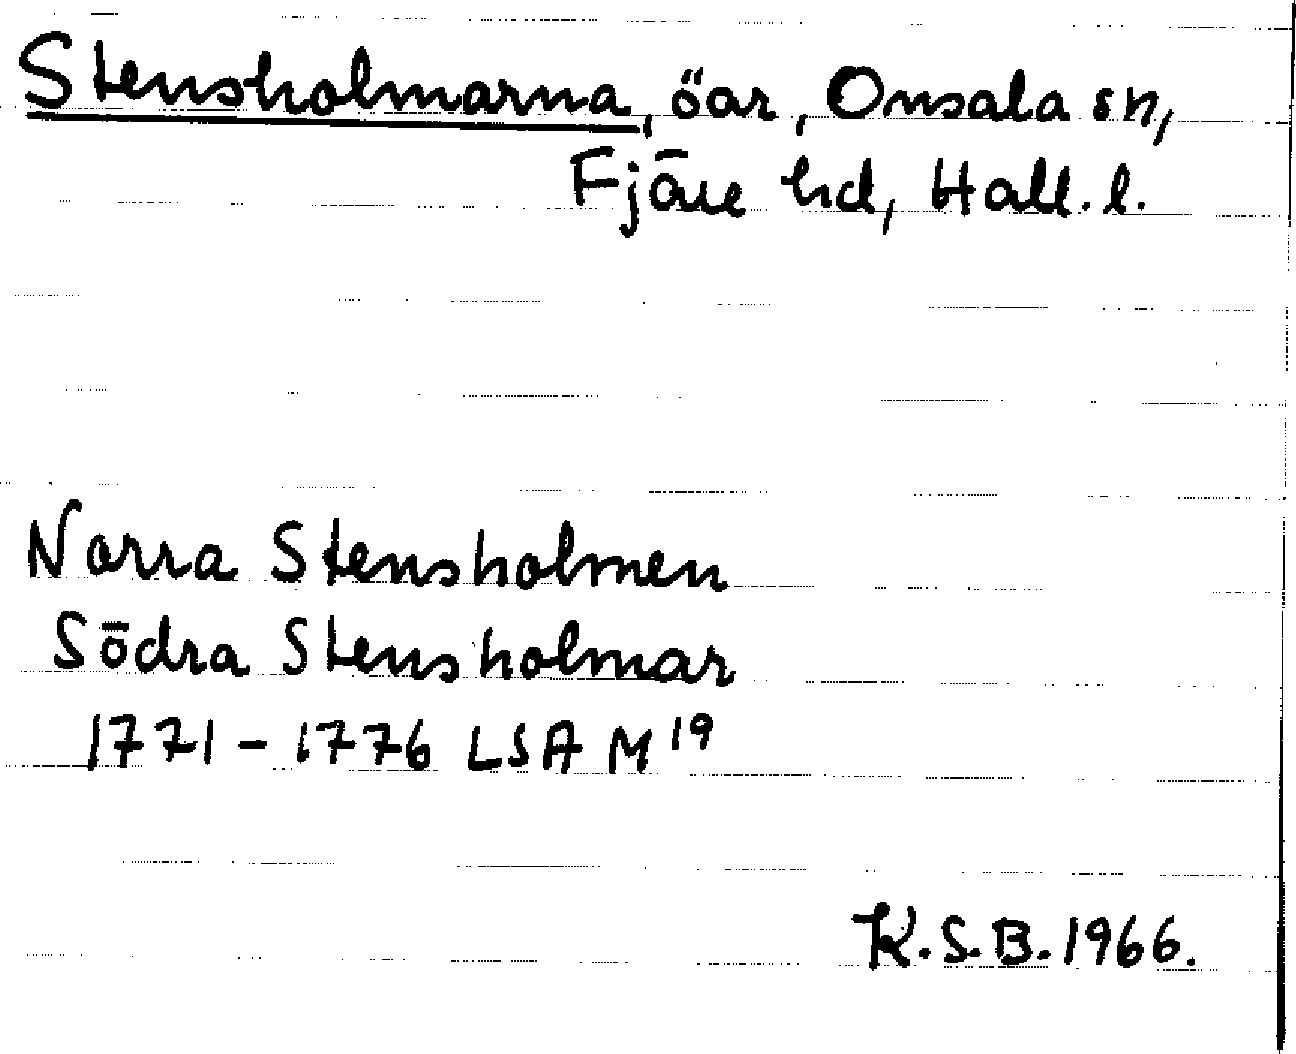 Stensholmarna, öar, Onsala sn,
Fjäre hd, Hall. l.
Norra Stensholmen
Södra Stensholmar
1771-1776 LSA M 19
K.S.B. 1966.